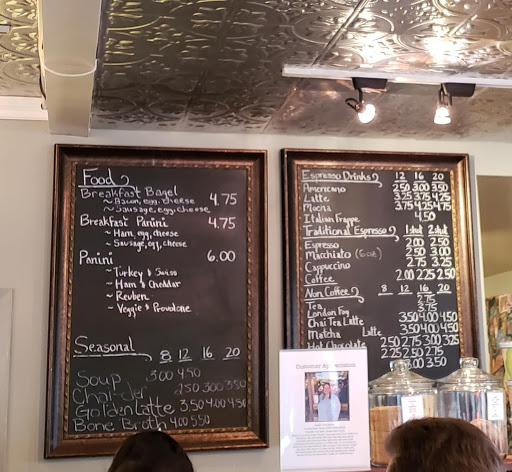 Food
Breakfast Bagel 4.75
~ Bacon, egg, cheese
~ Sausage, egg, cheese
Breakfast Panini 4.75
~ Ham, egg, cheese
~ Sausage, egg, cheese
Panini 6.00
~ Turkey & Swiss
~ Ham & Cheddar
~ Reuben
~ Veggie & Provolone
Seasonal 8 12 16 20
Soup 300 450
Chai-der 250 300 350
Golden Latte 350 400 450
Bone Broth 400 550
Espresso Drinks 12 16 20
Americano 2.50 3.00 3.50
Latte 3.25 3.75 4.25
Mocha 3.75 4.25 4.75
Italian Frappe 4.50
Traditional Espresso 1shot 2shot
Espresso 2.00 2.50
Macchiato (6oz) 2.50 3.00
Cappuccino 2.75 3.25
Coffee 2.00 2.25 2.50
Non Coffee 8 12 16 20
Tea 2.75
London Fog 3.75
Chai Tea Latte 3.50 4.00 4.50
Matcha Latte 3.50 4.00 4.50
Hot Chocolate 2.50 2.75 3.00 3.25
2.25 2.50 2.75
3.00 3.50
Customer Appreciation